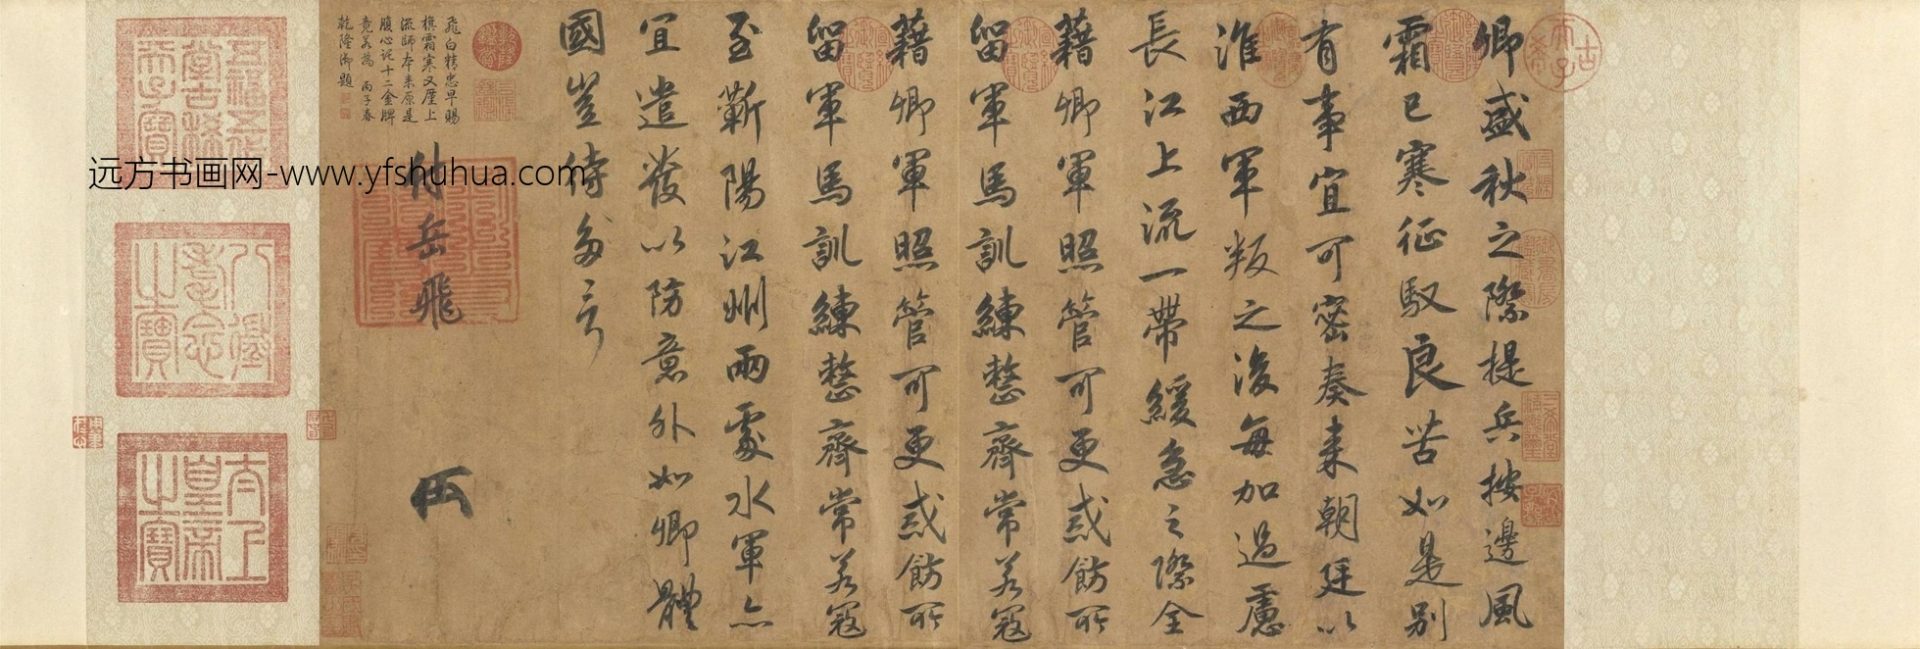 卿盛秋之際提兵按邊風
霜已寒征馭良苦如是別
有事宜可密奏来朝廷以
淮西軍叛之後每加過慮
長江上流一帶緩急之際全
藉卿軍照管可更戒飭所
留軍馬訓練整齊常若寇
藉卿軍照管可更戒飭所
留軍馬訓練整齊常若寇
至蘄陽江州兩處水軍亦
宜遣發以防意外如卿體
國豈待多言
付岳飛
飛白精忠早賜
旗霜寒又廑上
流師本来原是
腹心託十二金牌
竟若為 丙子春
乾隆御題
古希天子
五福五代堂古稀天子寶
八徵耄念之寶
太上皇帝之寶
远方书画网-www.yfshuhua.com